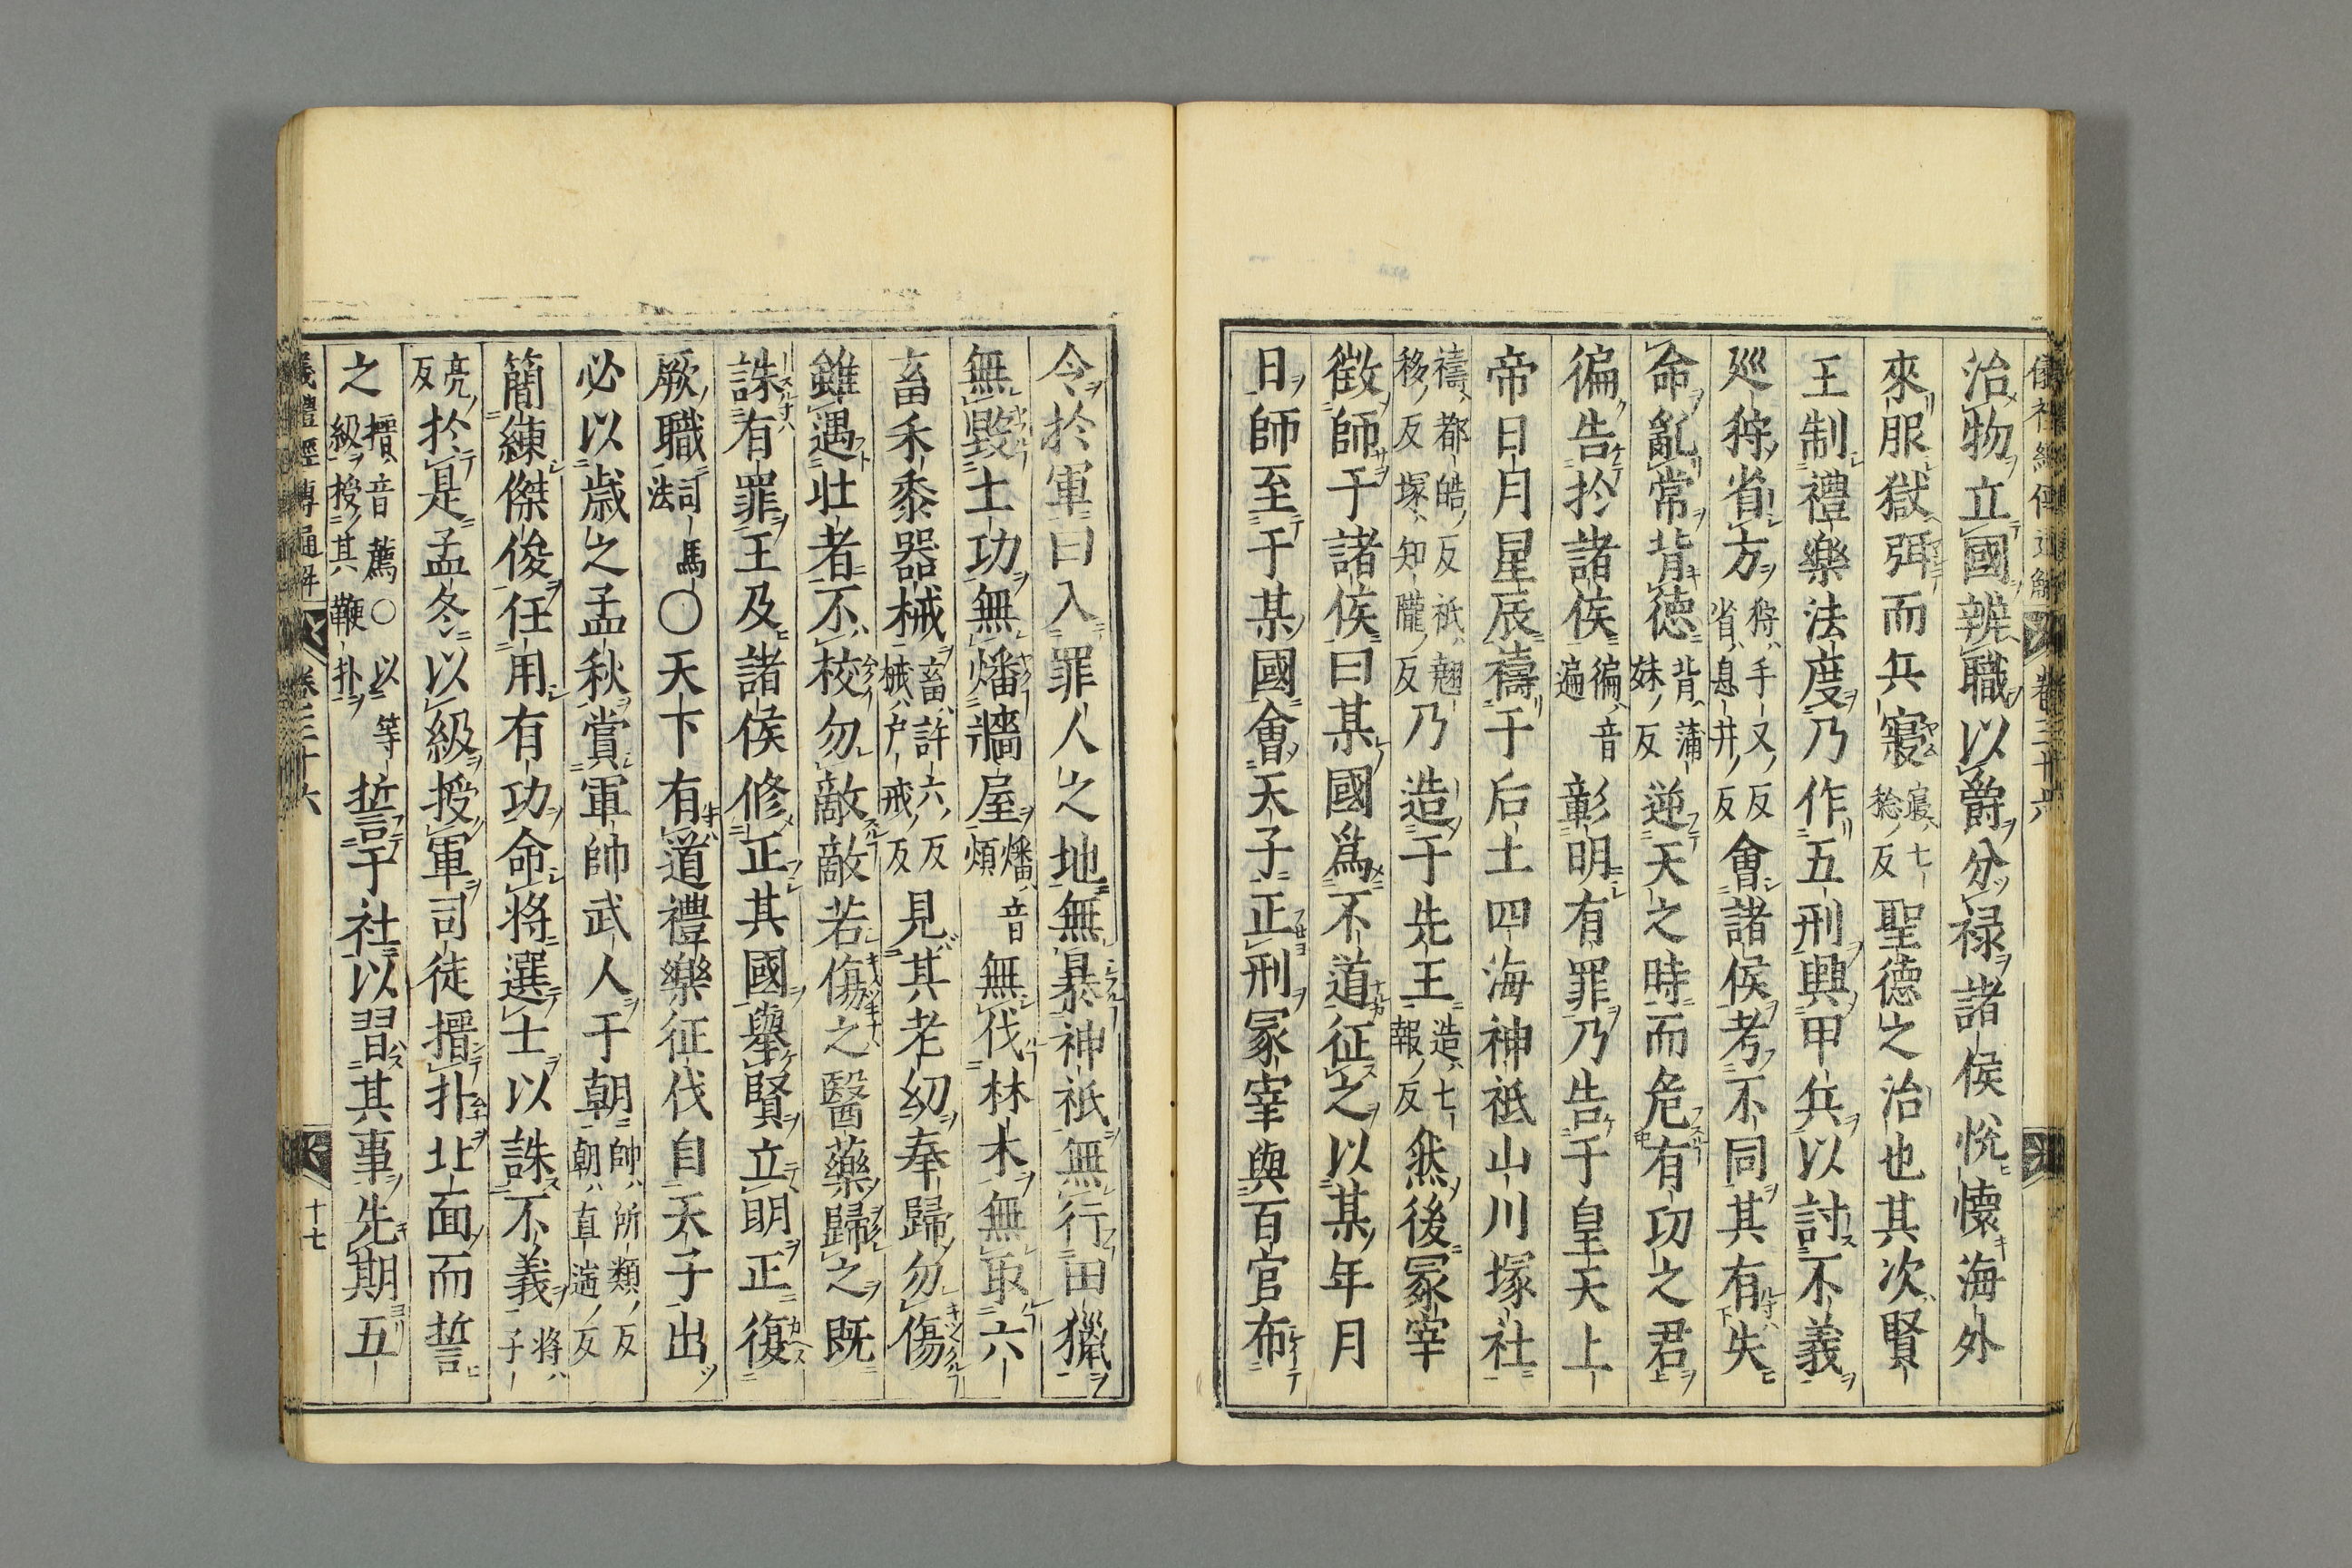 儀禮經傳通解 卷三十六
治物立國辨職以爵分祿諸侯悅懷海外
來服獄弭而兵寢寢七稔反聖德之治也其次賢
王制禮樂法度乃作五刑興甲兵以討不義
廵狩省方狩手又反省息井反會諸侯考不同其有失
命亂常背德背蒲妹反逆天之時而危有功之君
徧告於諸侯徧音遍彰明有罪乃告于皇天上
帝日月星辰禱于后土四海神祇山川塚社
禱都皓反祇翹移反塚知隴反乃造于先王造七報反然後冢宰
徵師于諸侯曰某國為不道征之以某年月
日師至于某國會天子正刑冢宰與百官布
令於軍曰入罪人之地無暴神祇無行田獵
無毀土功無燔牆屋燔音煩無伐林木無取六
畜禾黍器械畜許六反械戶戒反見其老幼奉歸勿傷
雖遇壯者不校勿敵敵若傷之醫藥歸之既
誅有罪王及諸侯修正其國舉賢立明正復
厥職司馬法〇天下有道禮樂征伐自天子出
必以歲之孟秋賞軍帥武人于朝帥所類反朝直遄反
簡練傑俊任用有功命將選士以誅不義將子
亮反於是孟冬以級授軍司徒搢扑北面而誓
之搢音薦〇以級授其等鞭扑誓于社以習其事先期五
儀禮經傳通解 卷三十六 十七